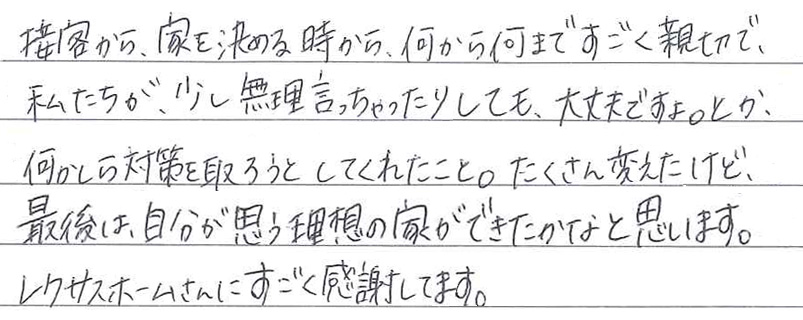 接客から、家を決める時から、何から何まですごく親切で、
私たちが、少し無理言っちゃったりしても、大丈夫ですよ。とか、
何かしら対策を取ろうとしてくれたこと。たくさん変えたけど、
最後は、自分が思う理想の家ができたかなと思います。
レクサスホームさんにすごく感謝してます。